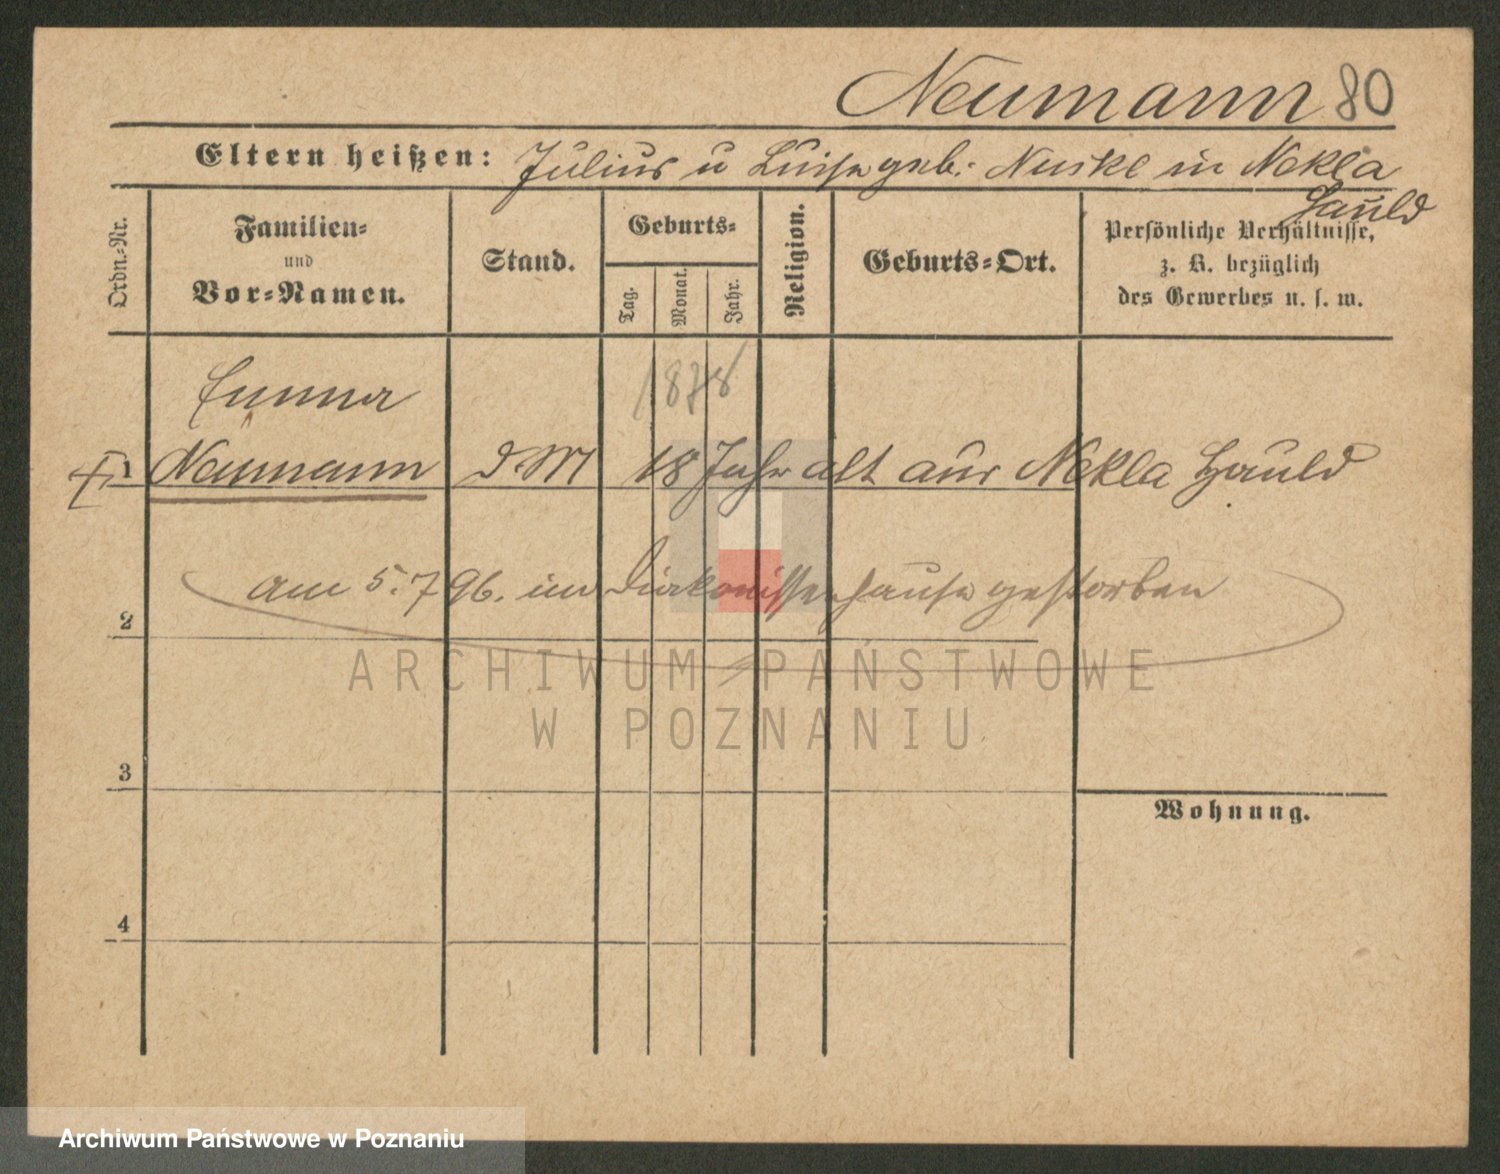 Neumann 80
Eltern heißen: Julius u Luise geb: Nuske in Nekla
Hauld
Ordn.-Nr.
Familien-
und
Vor-Namen.
Stand.
Geburts-
Tag.
Monat.
Jahr.
Religion.
Geburts-Ort.
Persönliche Verhältnisse,
z. B. bezüglich
des Gewerbes u. s. w.
Emma
1878
1 Neumann d. M 18 Jahr alt aus Nekla Hauld
am 5.7 96. im Diakonissenhause gestorben
2
ARCHIWUM PAŃSTWOWE
W POZNANIU
3
Wohnung.
4
Archiwum Państwowe w Poznaniu